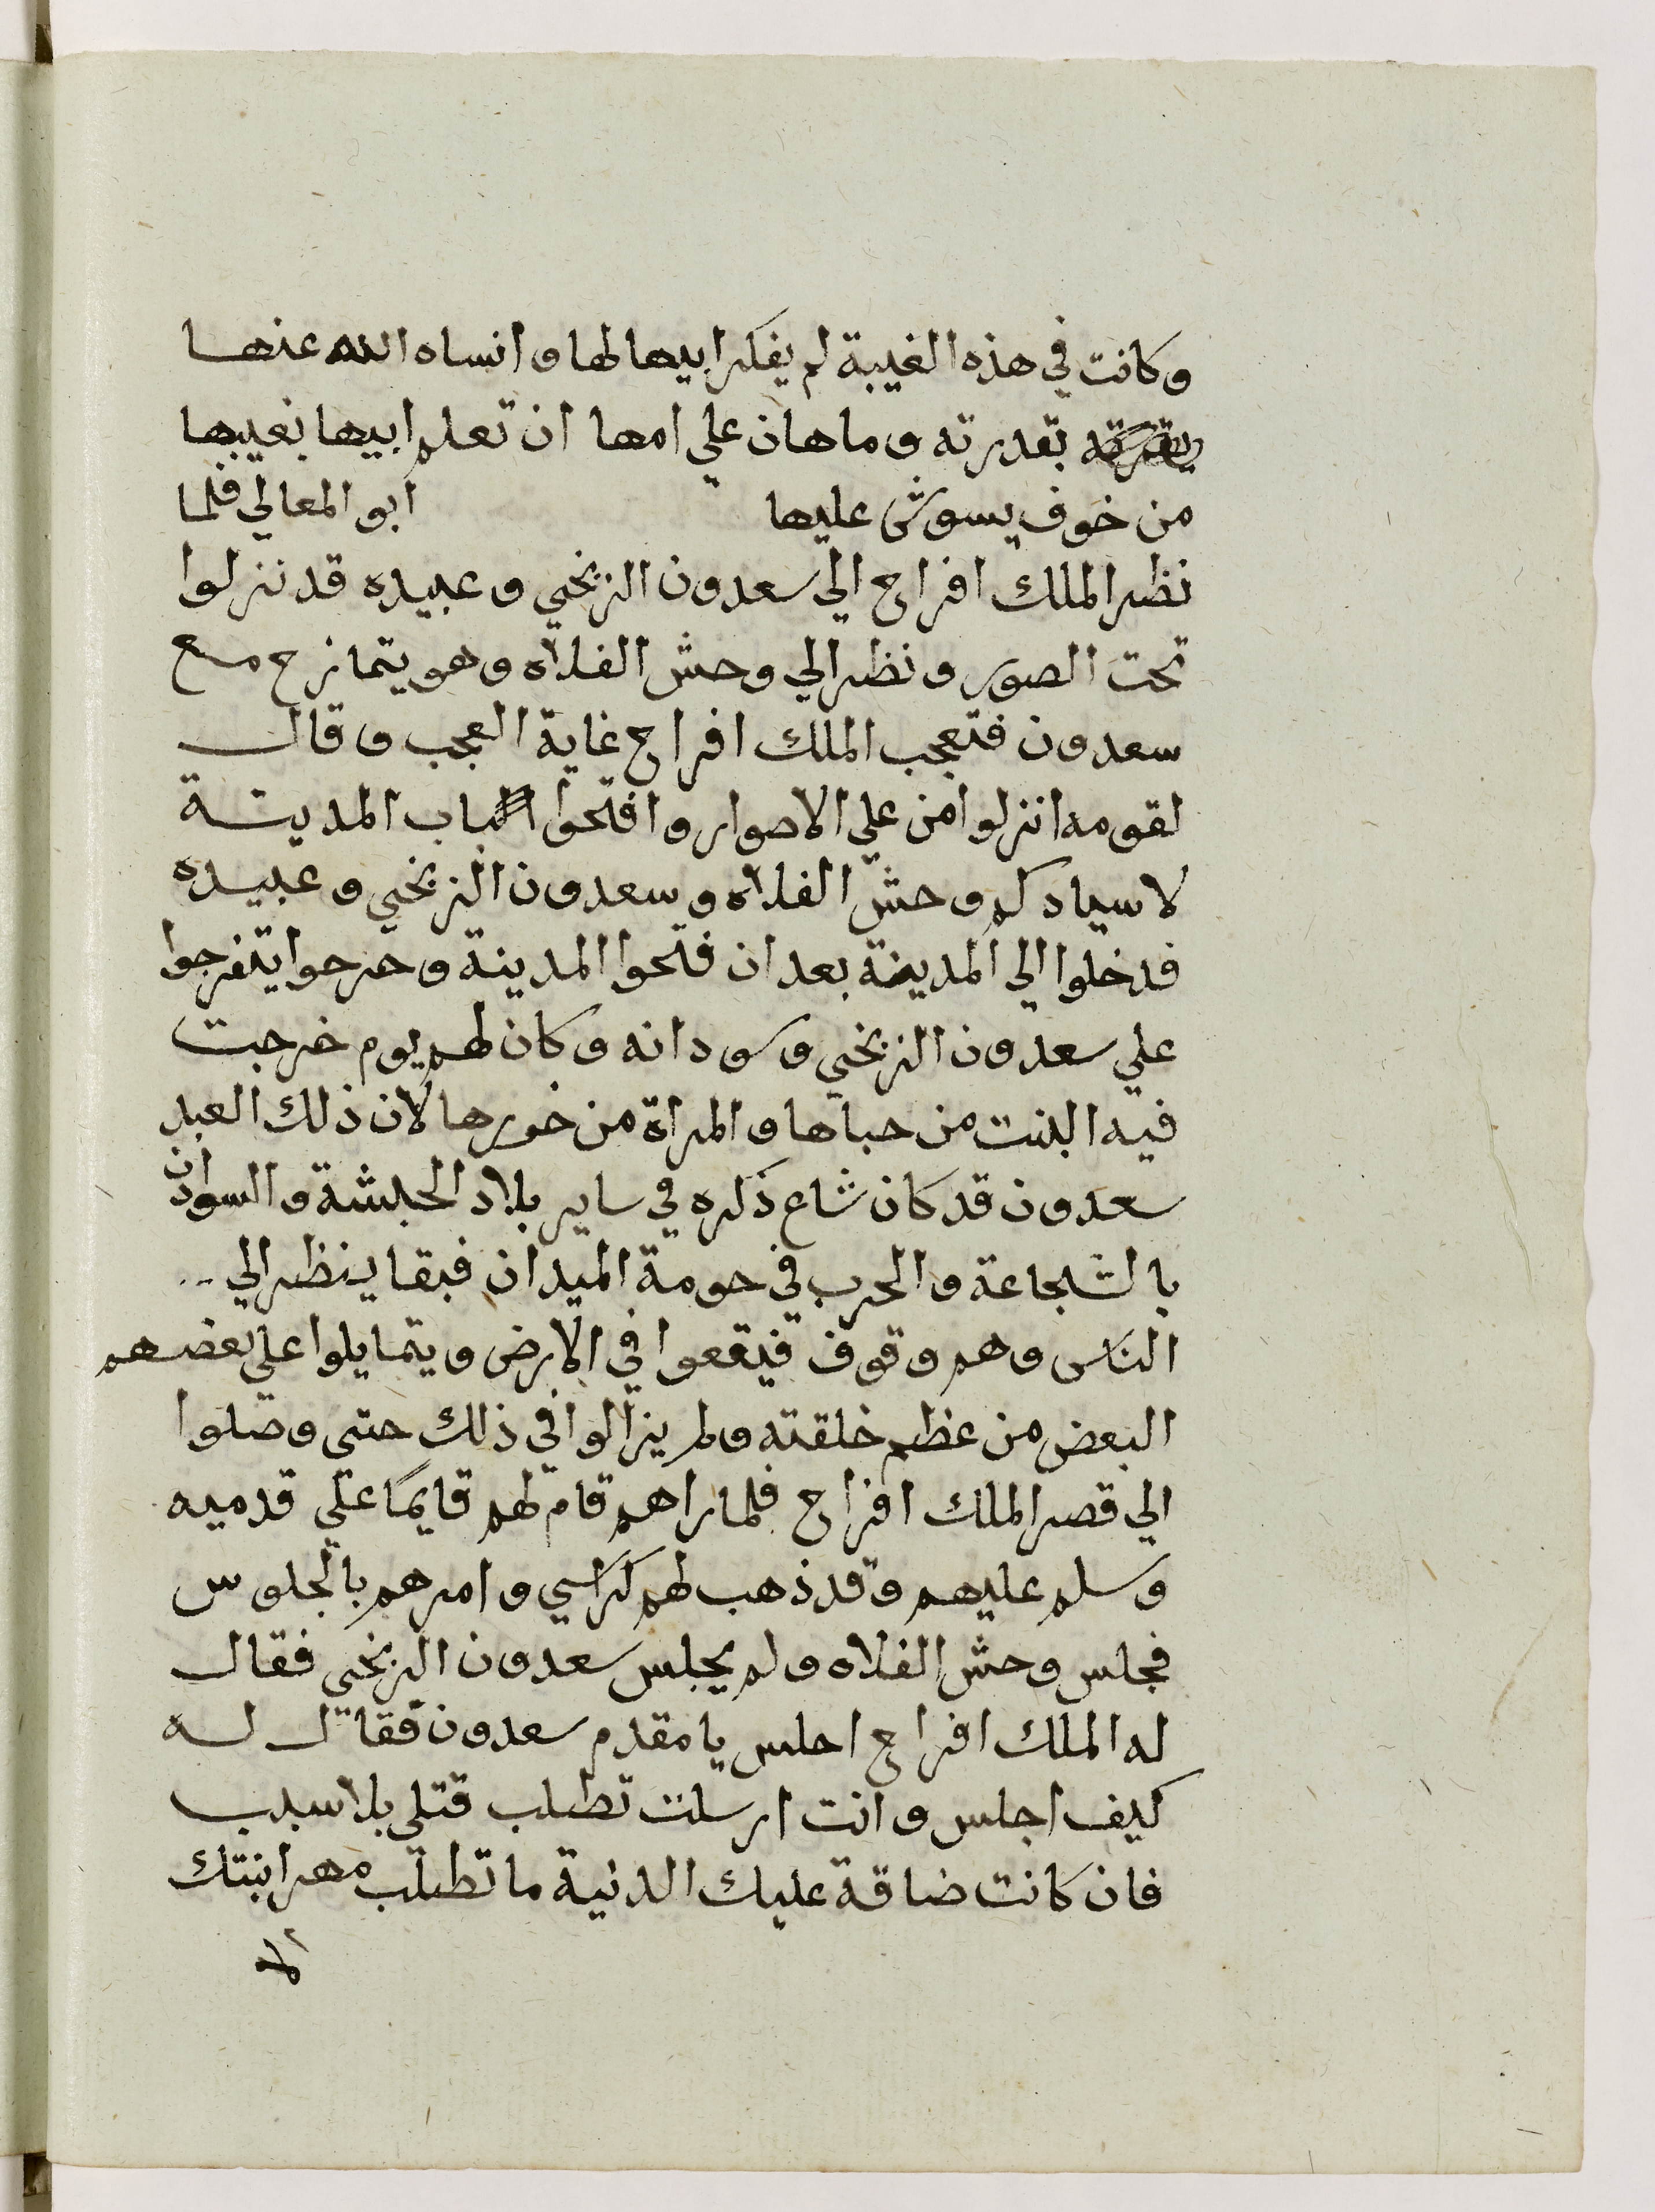 وكانت في هذه الغيبة لم يفكر ابيها لها وانساه الله عنها
بقدرته وما هان علي امها ان تعلم ابيها بغيبها
من خوف يسوش عليها ابو المعالي فلما
نظر الملك افراح الي سعدون الزنجي وعبيده قد نزلوا
تحت الصور ونظر الي وحش الفلاه وهو يتمازح مع
سعدون فتعجب الملك افراح غاية العجب وقال
لقومه انزلوا من علي الاصوار وافتحوا باب المدينة
لاسيادكم وحش الفلاه وسعدون الزنجي وعبيده
فدخلوا الي المدينة بعد ان فتحوا المدينة وخرجوا يتفرجوا
علي سعدون الزنجي وسودانه وكان لهم يوم خرجت
فيه البنت من خباها والمراة من خورها لان ذلك العبد
سعدون قد كان شاع ذكره في ساير بلاد الحبشة والسوادان
بالشجاعة والحرب في حومة الميدان فبقا ينظر الي
الناس وهم وقوف فيقعوا في الارض ويتمايلوا علي بعضهم
البعض من عظم خلقته ولم يزالوا في ذلك حتى وصلوا
الي قصر الملك افراح فلما راهم قام لهم قايمًا علي قدميه
وسلم عليهم وقد ذهب لهم كراسي وامرهم بالجلوس
فجلس وحش الفلاه ولم يجلس سعدون الزنجي فقال
له الملك افراح اجلس يا مقدم سعدون فقال له
كيف اجلس وانت ارسلت تطلب قتلي بلا سبب
فان كانت ضاقة عليك الدنية ما تطلب مهر ابنتك
الا